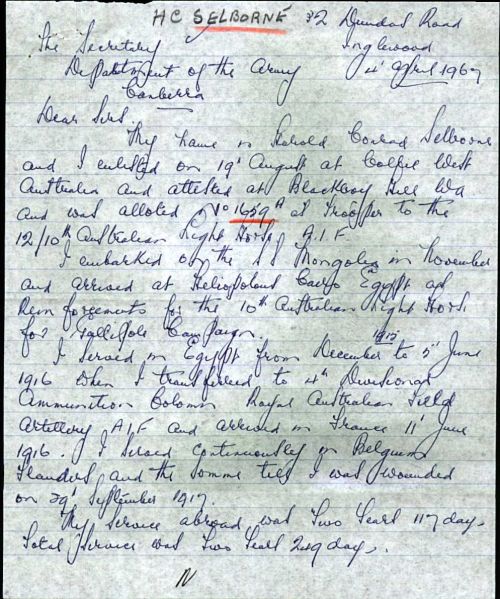 H C SELBORNE 32 Dundas Road
The Secretary Inglewood
Department of the Army 4' April 1967
Canberra
Dear Sirs.
My name is Harold Conrad Selborne
and I enlisted on 19' August at Collie West
Australia and attested at Blackboy Hill WA
and was alloted No 1659A as Trooper to the
12/10th Australian Light Horse A.I.F.
I embarked on the SS Mongolia in November
and arrived at Heliopolous Cairo Egypt as
Reinforcements for the 10th Australian Light Horse
for Gallipoli Campaign.
I served in Egypt from December 1915 to 5' June
1916 when I transferred to 4th Divisional
Ammunition Column Royal Australian Field
Artillery A.I.F and arrived in France 11' June
1916. I served continuously in Belgium
Flanders and the Somme till I was wounded
on 29' September 1917.
My service abroad was Two Years 117 days
Total Service was Two Years 249 days.